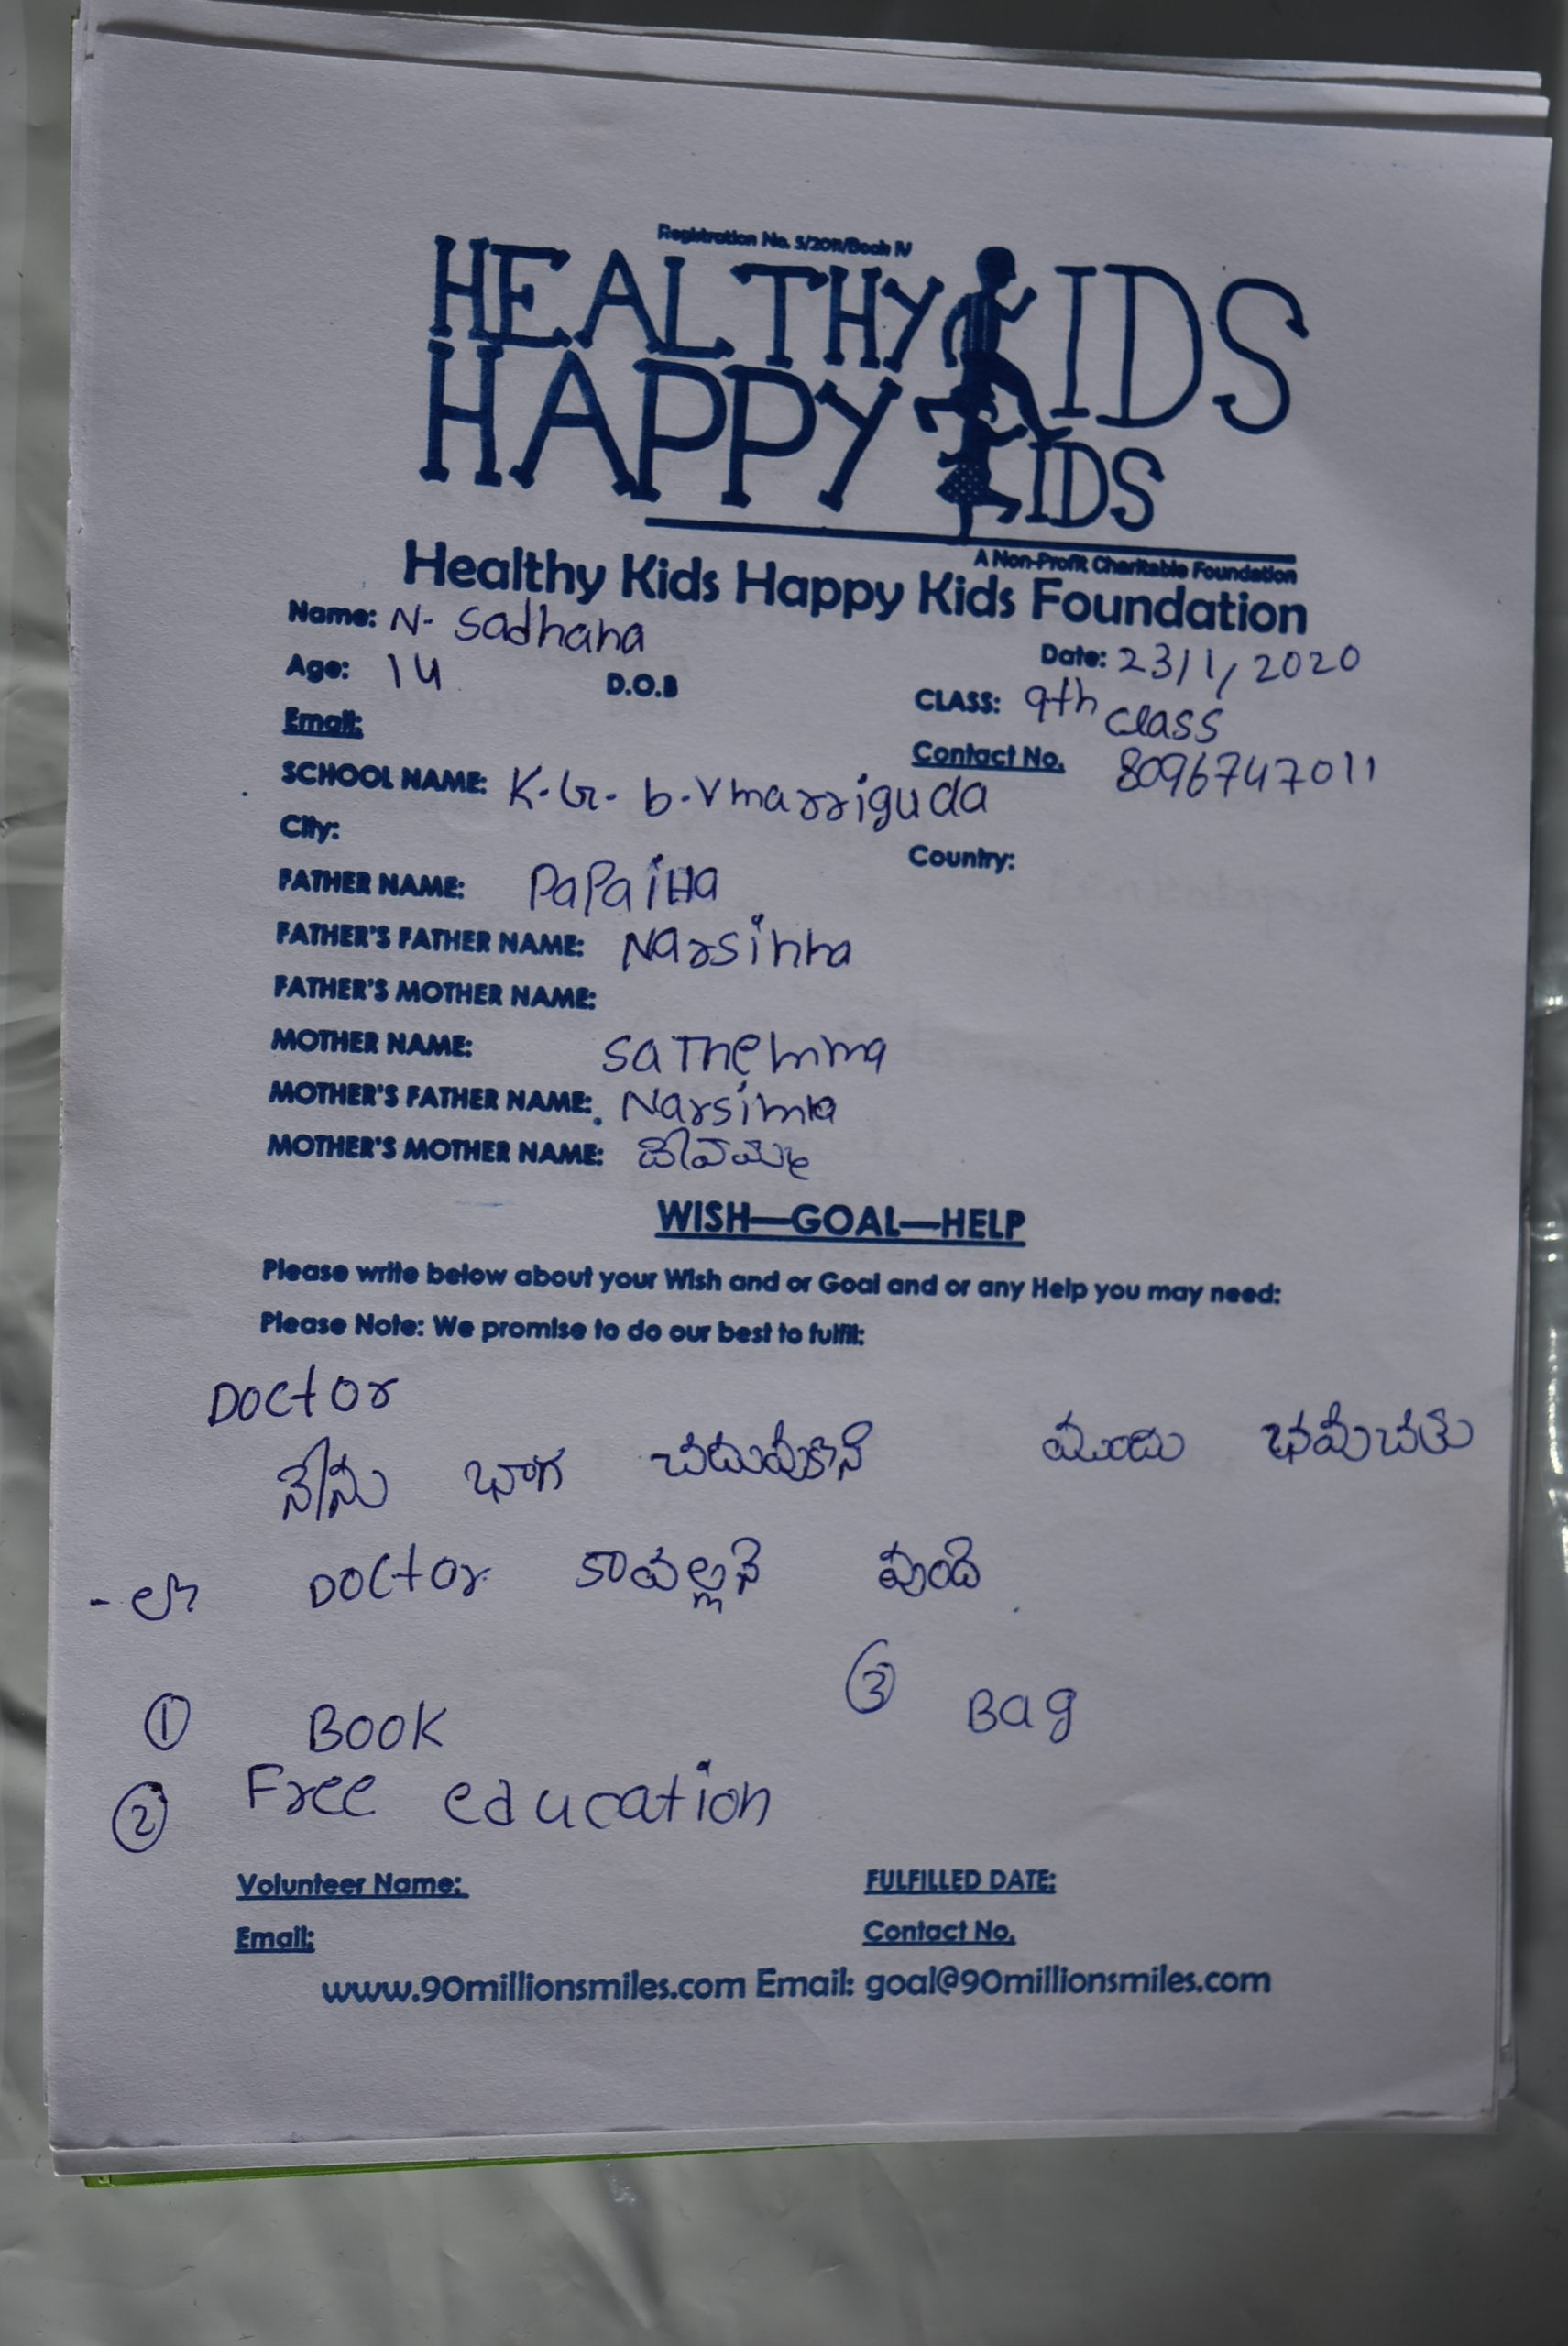 Registration No. 5/2011/Book IV
HEALTHY KIDS
HAPPY KIDS
A Non-Profit Charitable Foundation
Healthy Kids Happy Kids Foundation
Name: N. Sadhana
Date: 23/1/2020
Age: 14 D.O.B
CLASS: 9th class
Email:
Contact No. 8096747011
SCHOOL NAME: K.G. b.Vmarriguda
City:
Country:
FATHER NAME: PaPaiHa
FATHER'S FATHER NAME: Narsinha
FATHER'S MOTHER NAME:
MOTHER NAME: SaThemma
MOTHER'S FATHER NAME: Narsimha
MOTHER'S MOTHER NAME: దేవమ్మ
WISH—GOAL—HELP
Please write below about your Wish and or Goal and or any Help you may need:
Please Note: We promise to do our best to fulfil:
Doctor
నేను భాగ చదువుకొని ముందు భవిచతు
-లో Doctor కావల్లని వుంది
① Book ③ Bag
② Free eaucation
Volunteer Name: FULFILLED DATE:
Email: Contact No.
www.90millionsmiles.com Email: goal@90millionsmiles.com